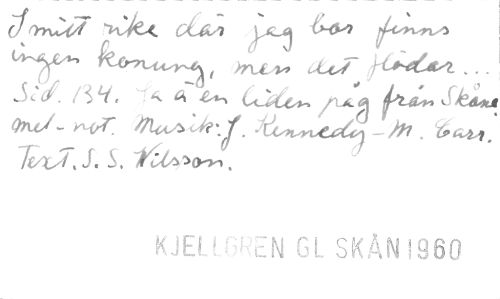 I mitt rike där jag bor finns
ingen konung, men det flödar...
Sid. 134. Ja ä en liden påg från Skåne
mel-not. Musik: J. Kennedy-M. Carr.
Text. S. S. Wilsson.
KJELLGREN GL SKÅN 1960